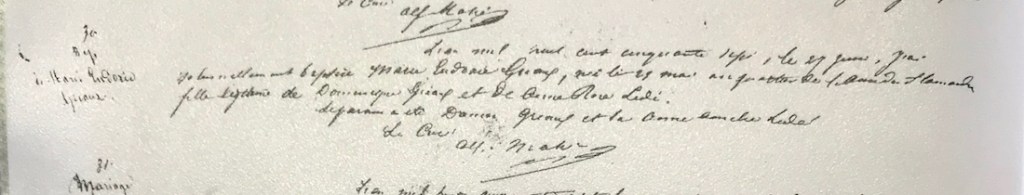 Le Curé
Alf Mahé
30
Bp.
de Marie Ludovie
Greaux.
L'an mil huit cent cinquante sept, le 27 juin, j'ai
solennellement baptisé Marie Ludovie Greaux, née le 29 mai au quartier de l'Anse des Flamands
fille légitime de Dominique Greaux et de Anne Rose Lédé.
le parrain a été Greaux et la Anne Lédé
Le Curé
Alf. Mahé
31.
Mariage
L'an mil huit cent